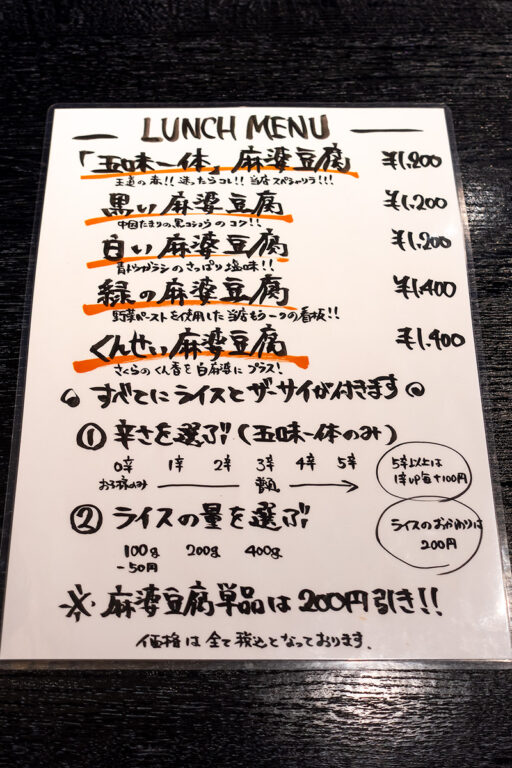 LUNCH MENU
「五味一体」麻婆豆腐 ¥1,200
王道の赤!!迷ったらコレ!!当店スペシャリテ!!!
黒い麻婆豆腐 ¥1,200
中国たまりの黒コショウのコク!!
白い麻婆豆腐 ¥1,200
青トウガラシのさっぱり塩味!!
緑の麻婆豆腐 ¥1,400
野菜ペーストを使用した当店もう一つの看板!!
くんせい麻婆豆腐 ¥1,400
さくらのくん香を白麻婆にプラス!
すべてにライスとザーサイが付きます
① 辛さを選ぶ(五味一体のみ)
0辛 1辛 2辛 3辛 4辛 5辛
お子様のみ 普通
5辛以上は
1辛UP毎+100円
② ライスの量を選ぶ
100g 200g 400g
-50円
ライスのおかわりは
200円
※麻婆豆腐単品は200円引き!!
価格は全て税込となっております.